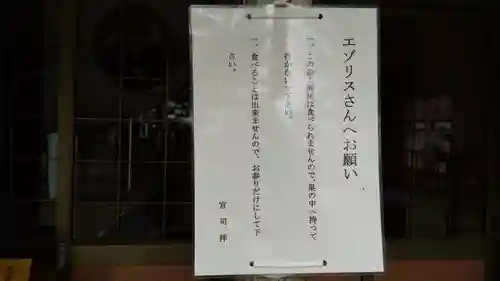 エゾリスさんへお願い
一、この鈴、麻縄は食べられませんので、巣の中へ持って
行かないで下さい。
一、食べることは出来ませんので、お参りだけにして下
さい。
宮司 拝